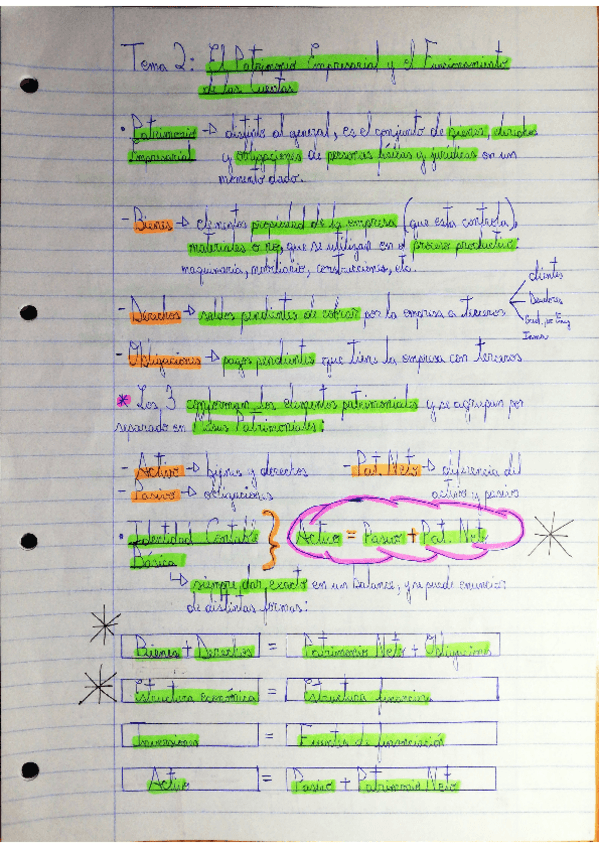 Tema 2: El Patrimonio Empresarial y el Funcionamiento
de las Cuentas
• Patrimonio → distinto al general, es el conjunto de bienes, derechos
Empresarial y obligaciones de personas físicas y jurídicas en un
momento dado.
- Bienes → elementos propiedad de la empresa (que esta controla),
materiales o no, que se utilizan en el proceso productivo:
maquinaria, mobiliario, construcciones, etc.
- Derechos → saldos pendientes de cobrar por la empresa a terceros
clientes
Deudores
- Obligaciones → pagos pendientes que tiene la empresa con terceros
* Los 3 conforman los elementos patrimoniales y se agrupan por
separado en Masas Patrimoniales:
- Activo → bienes y derechos - Pat. Neto → diferencia del
- Pasivo → obligaciones activo y pasivo
• Identidad Contable } Activo = Pasivo + Pat. Neto
Básica
↳ siempre dar exacto en un Balance, y se puede enunciar
de distintas formas:
Bienes + Derechos = Patrimonio Neto + Obligaciones
Estructura económica = Estructura financiera
Inversiones = Fuentes de financiación
Activo = Pasivo + Patrimonio Neto